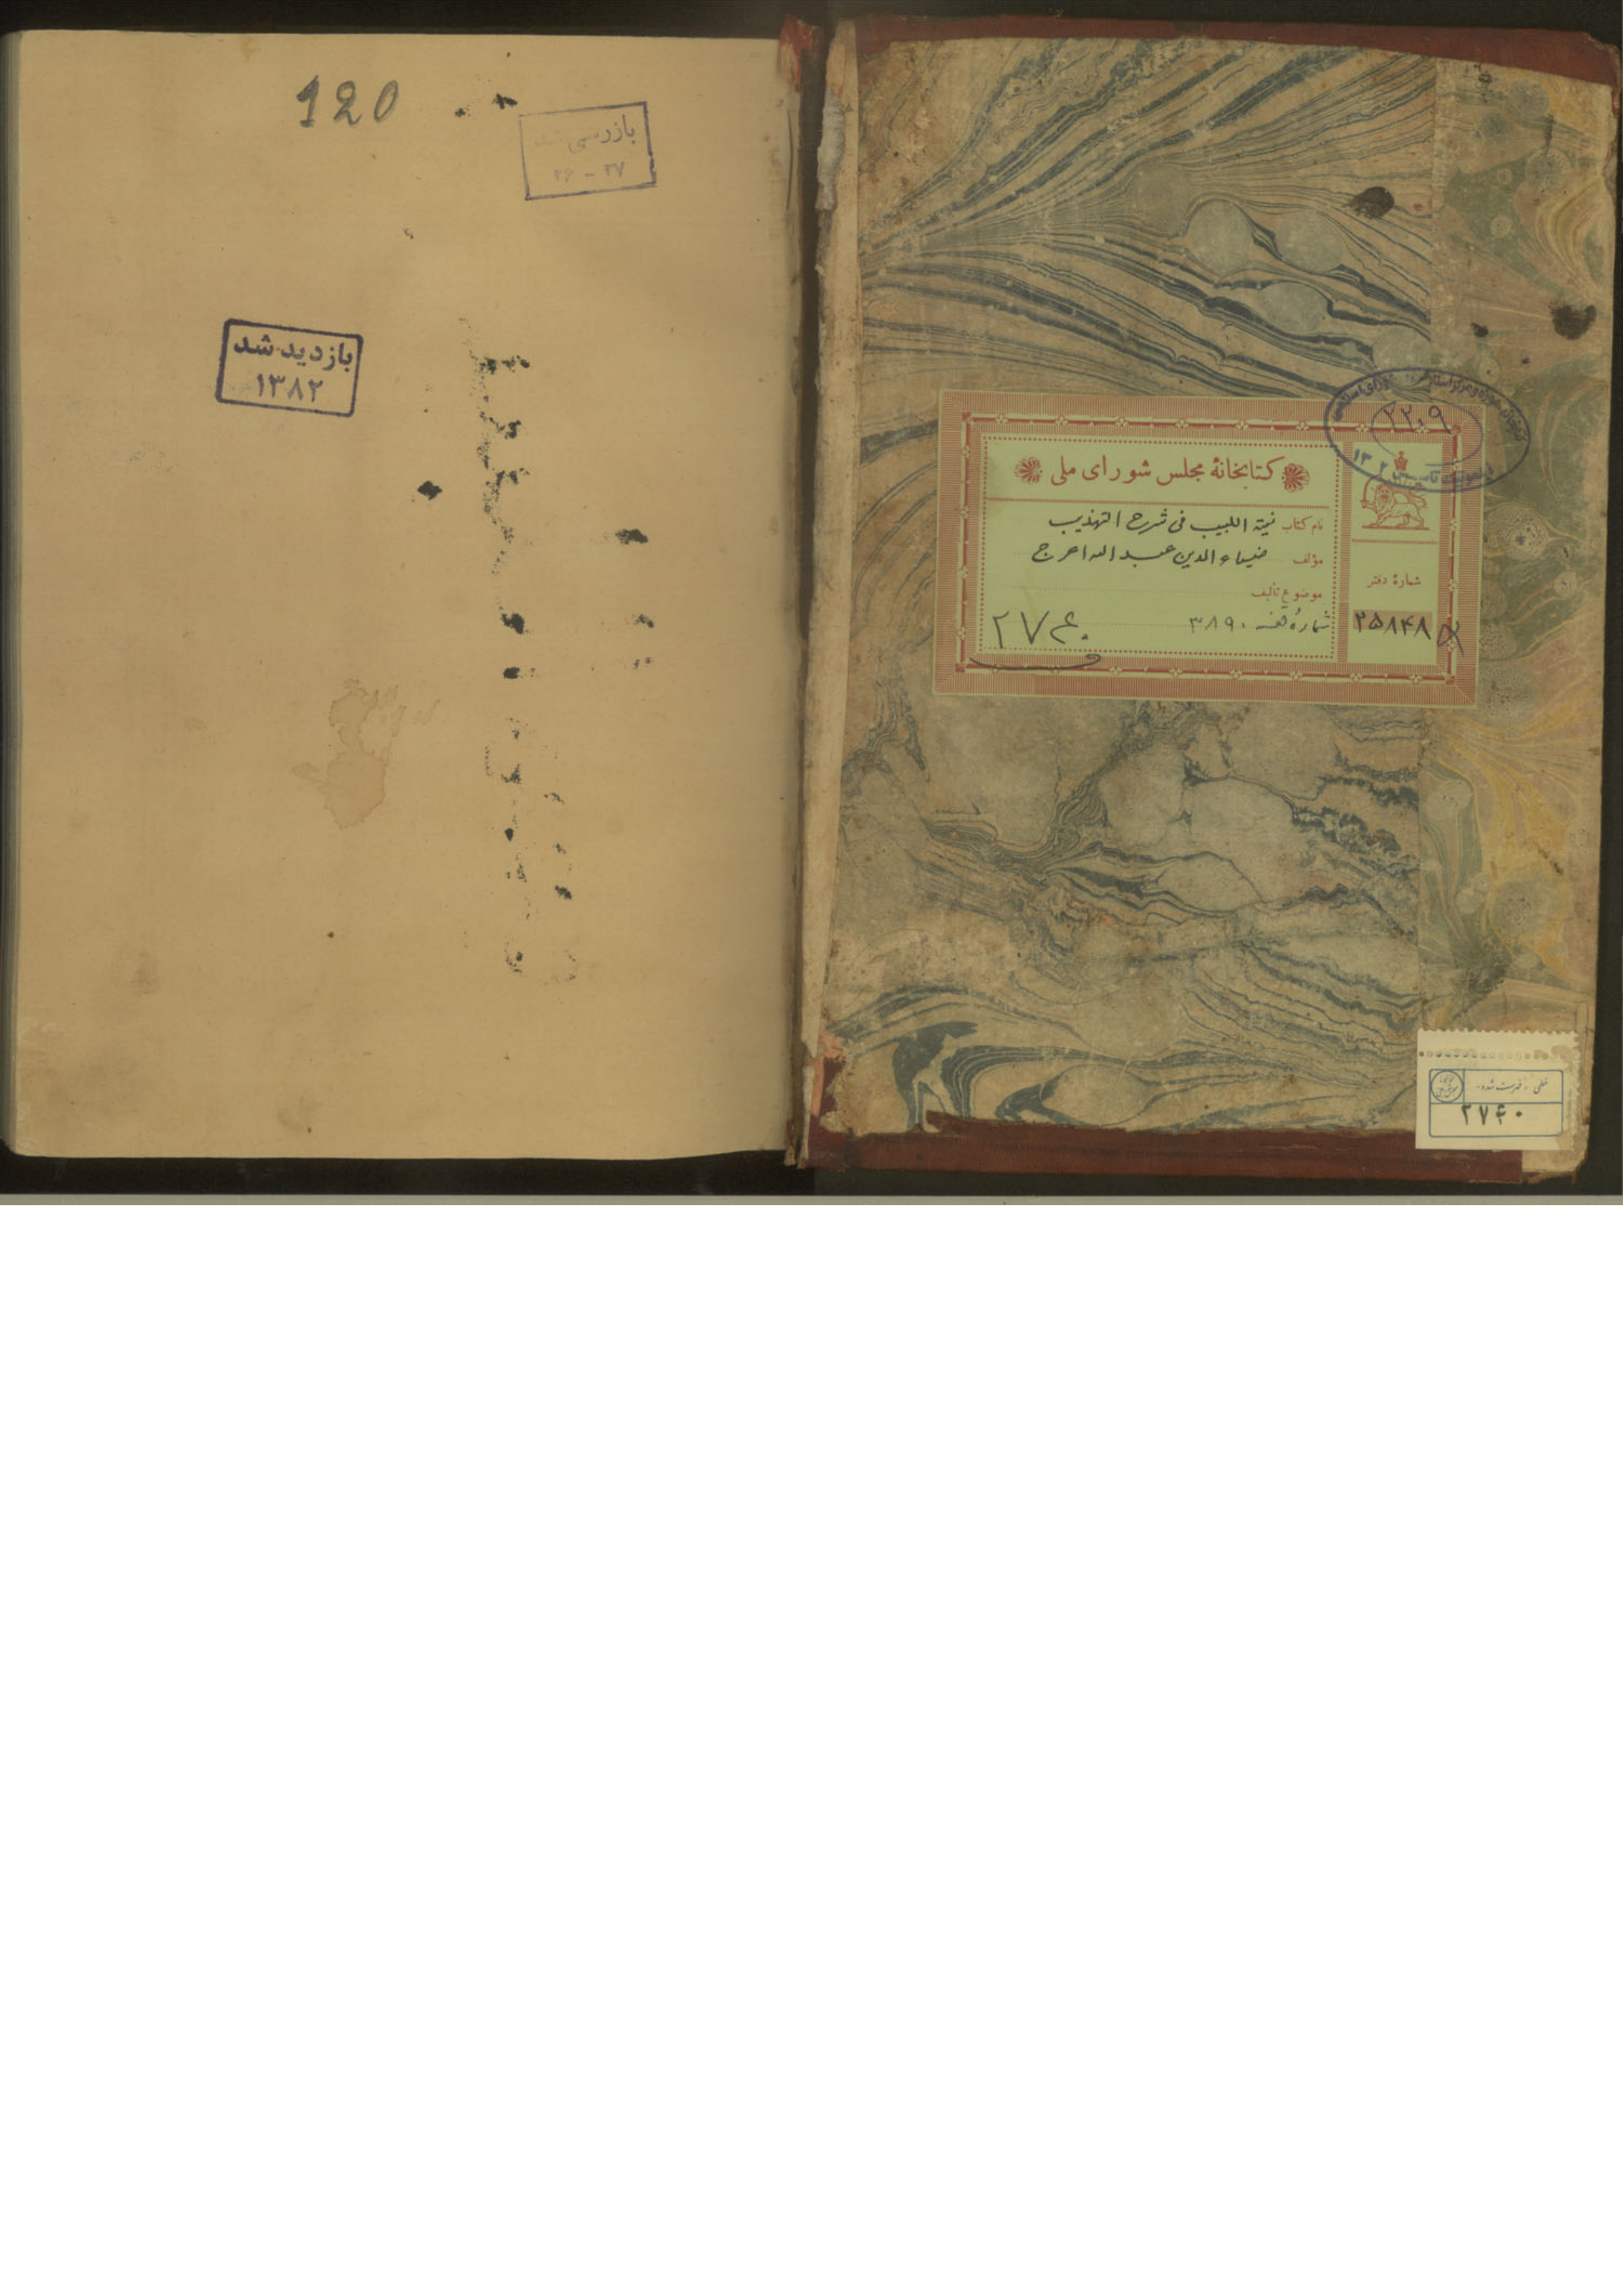 120
بازرسی شد
۲۶ - ۲۷
بازدید شد
۱۳۸۲
۲۲۰۹
کتابخانهٔ مجلس شورای ملی
نام کتاب نیة اللبیب فی شرح التهذیب
مؤلف ضیاء الدین عبد الله اعرج
موضوع تألیف
شمارهٔ قفسه ۳۸۹۰
۲۷۶۰
شمارهٔ دفتر
۲۵۸۴۸
خطی - فهرست شده -
۲۷۶۰